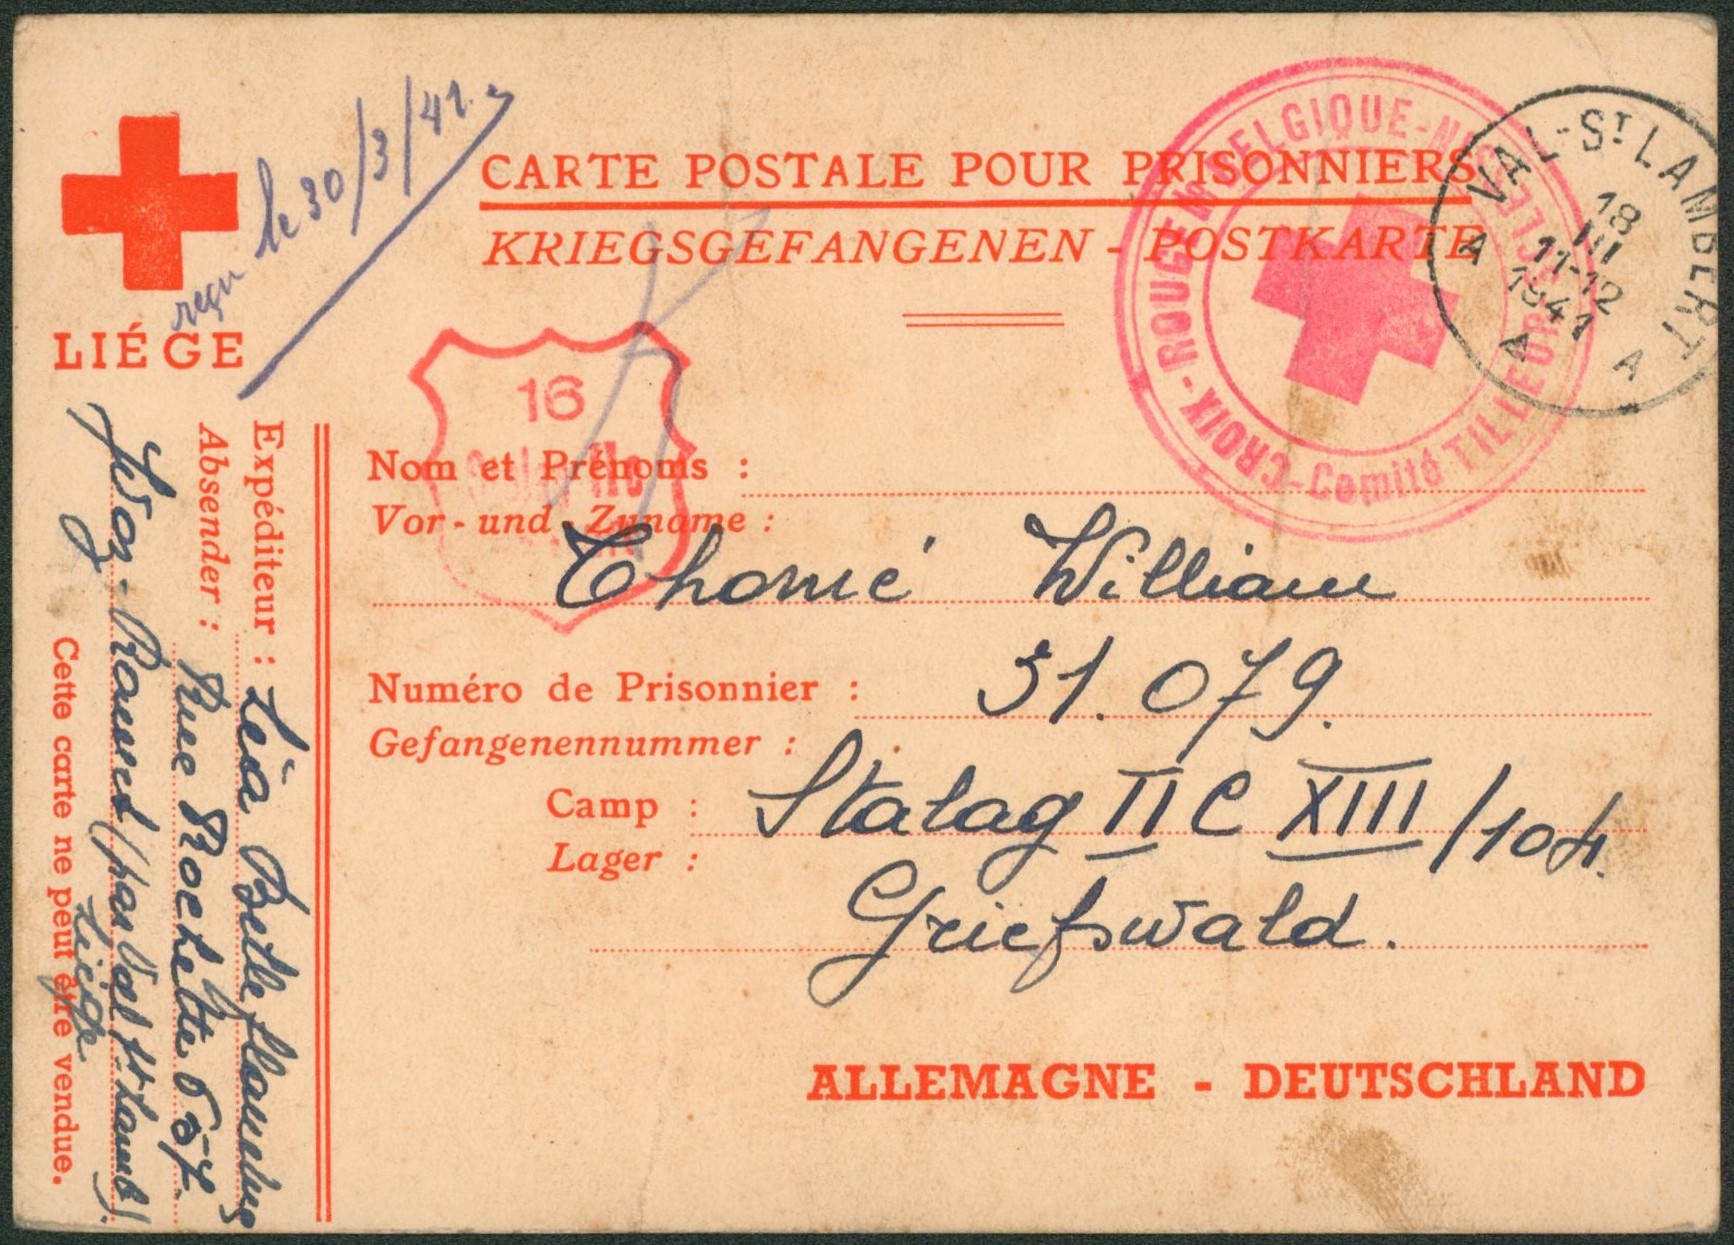 reçu le 30/3/41.
LIÉGE
CARTE POSTALE POUR PRISONNIERS
KRIEGSGEFANGENEN - POSTKARTE
CROIX-ROUGE DE BELGIQUE
Comité TILLEUR
VAL-ST LAMBERT
18
III
11-12
1941
A A
16
Nom et Prénoms :
Vor- und Zuname :
Thomé William
Numéro de Prisonnier : 31.079.
Gefangenennummer :
Camp : Stalag II C XIII/104.
Lager :
Griefswald.
ALLEMAGNE - DEUTSCHLAND
Expéditeur : Léa
Absender : Rue
Ramet (par Val St Lamb)
Liége
Cette carte ne peut être vendue.